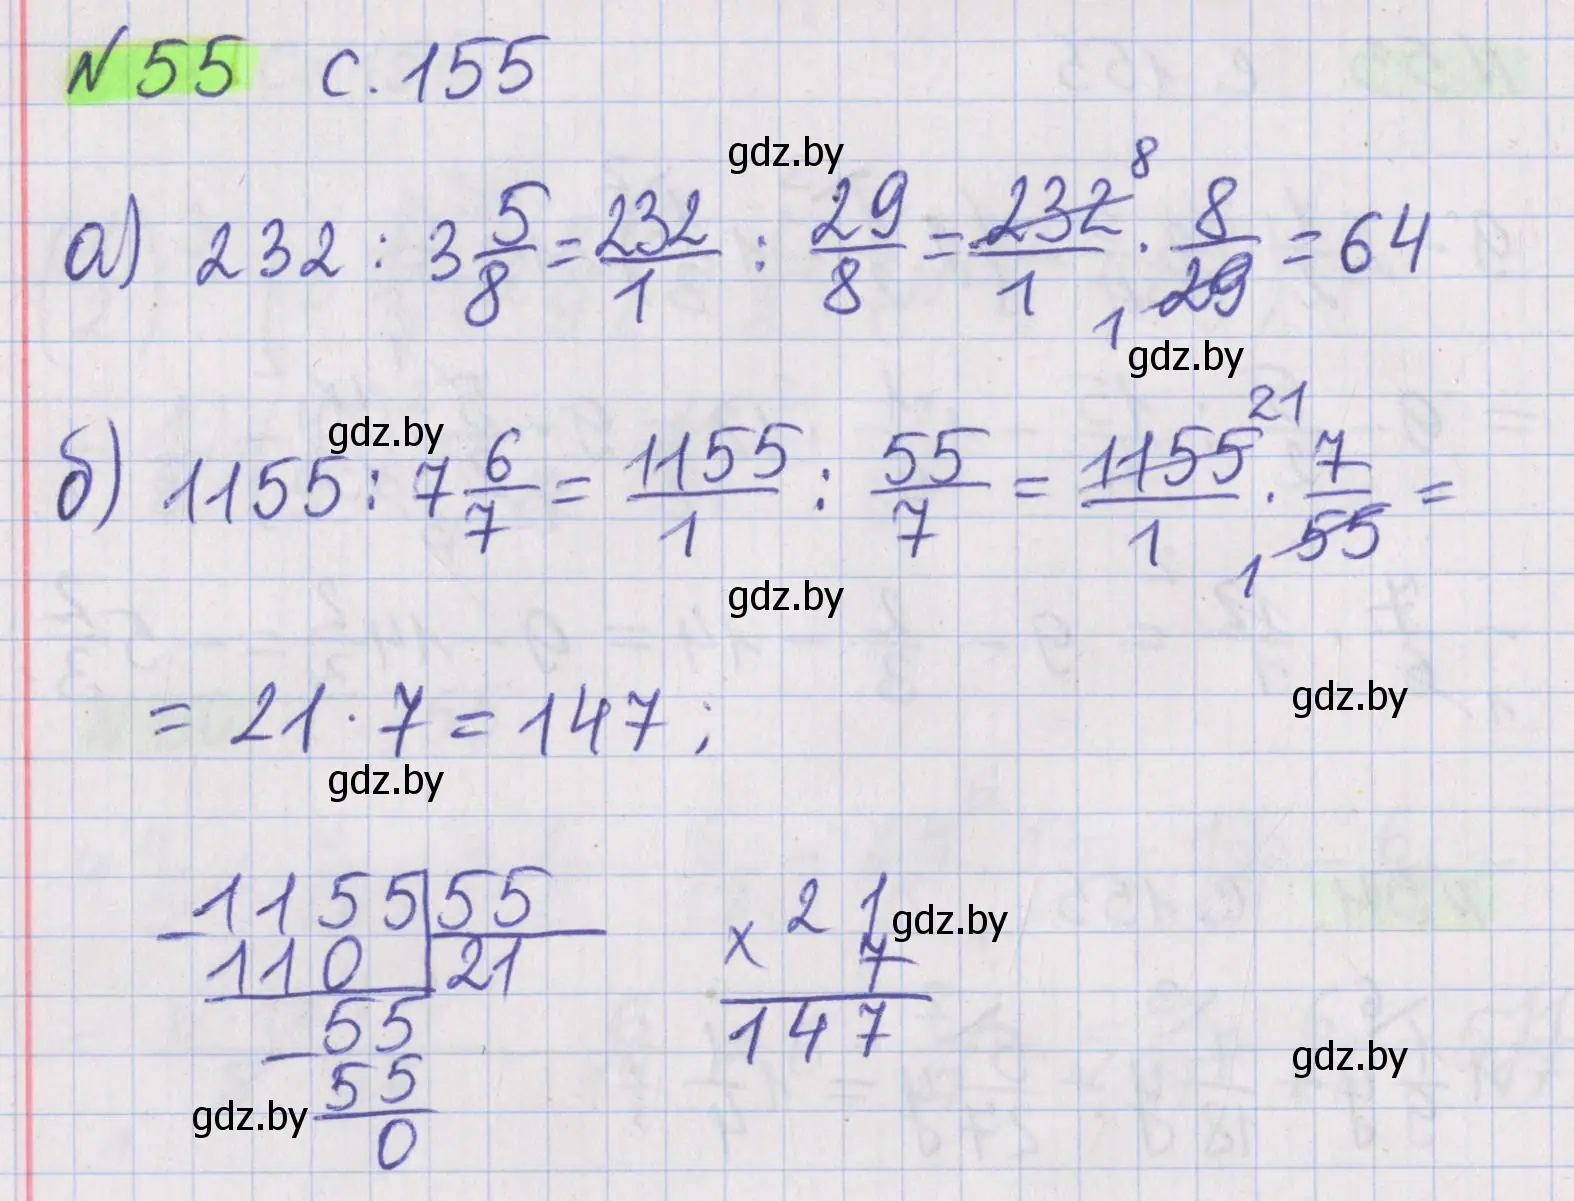 № 55 с. 155
gdz.by
а) 232 : 3 5/8 = 232/1 : 29/8 = 232/1 8 · 8/29 1 = 64
gdz.by
gdz.by
б) 1155 : 7 6/7 = 1155/1 : 55/7 = 1155/1 21 · 7/55 1 =
gdz.by
gdz.by
= 21 · 7 = 147 ;
gdz.by
− 1155 | 55
110 | 21
− 55
55
0
× 21
7
147
gdz.by
gdz.by
gdz.by